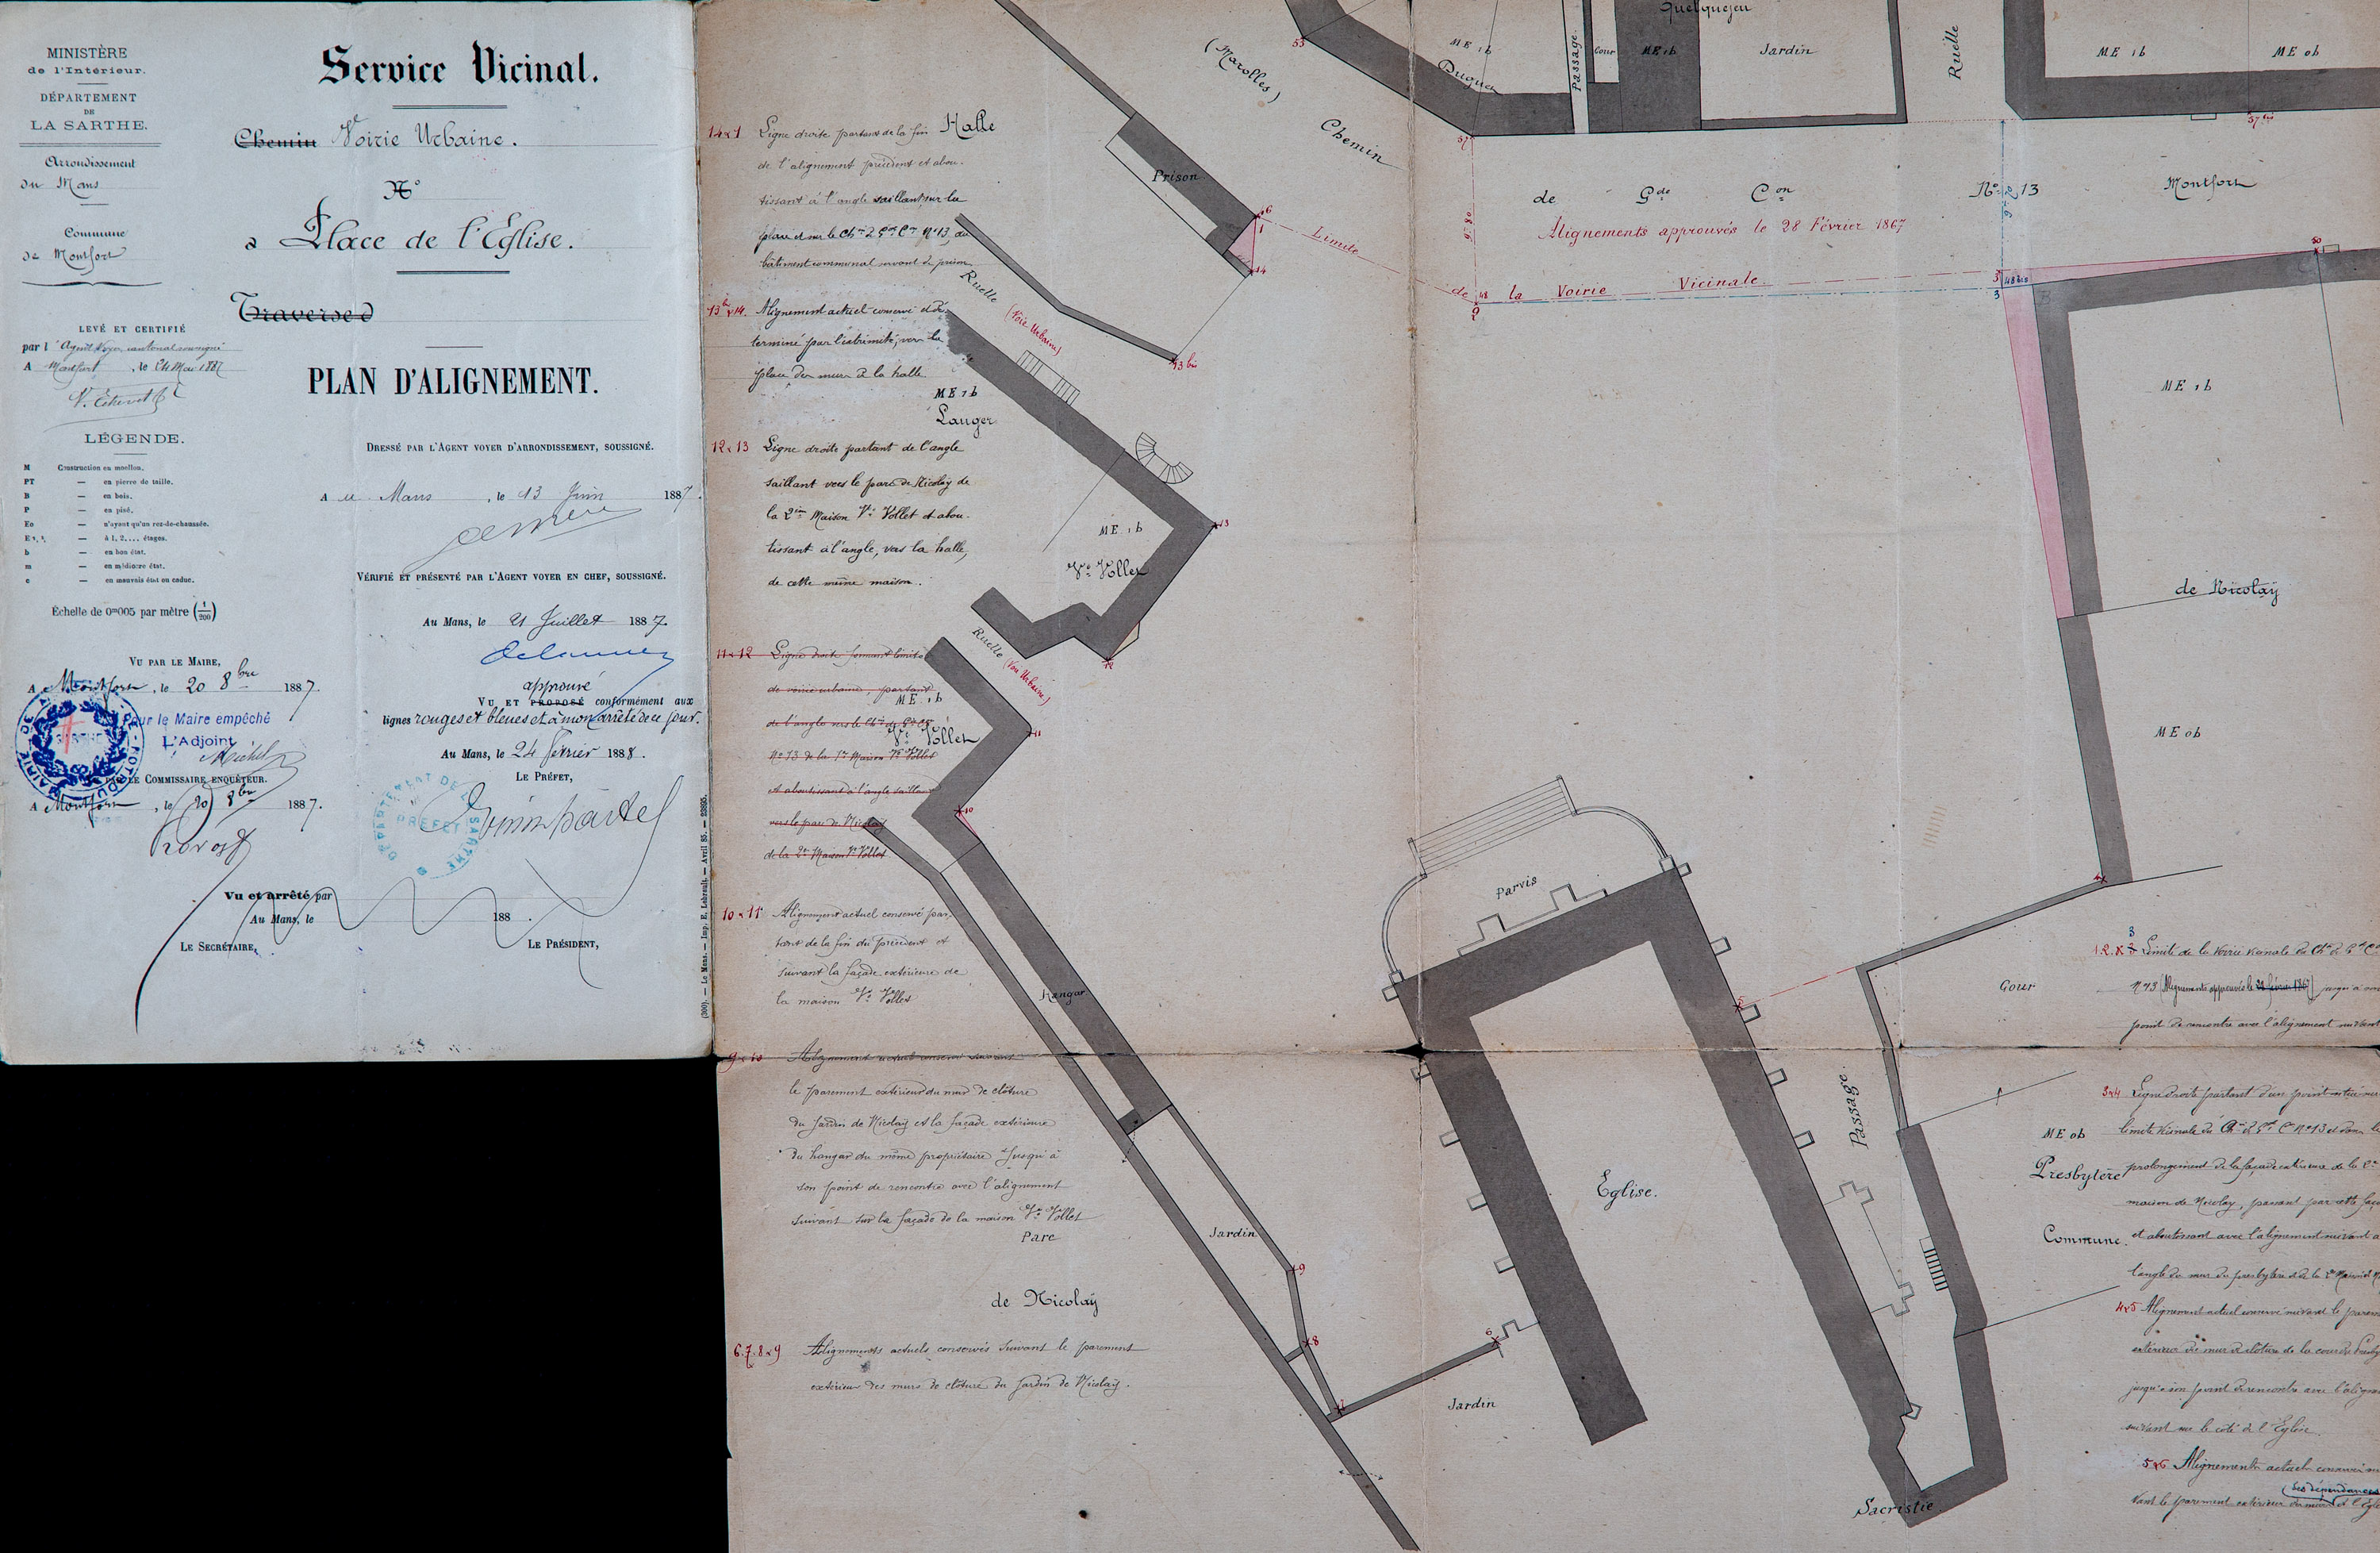 MINISTÈRE
de l'Intérieur.
DÉPARTEMENT
DE
LA SARTHE.
Arrondissement
du Mans
Commune
de Montfort
LEVÉ ET CERTIFIÉ
par l'Agent Voyer cantonal soussigné
A Montfort, le 24 Mai 1887
LÉGENDE.
M Construction en moellon.
PT — en pierre de taille.
B — en bois.
P — en pisé.
Eo — n'ayant qu'un rez-de-chaussée.
E1, 2, — à 1, 2,... étages.
b — en bon état.
m — en médiocre état.
c — en mauvais état ou caduc.
Échelle de 0m005 par mètre (1/200)
VU PAR LE MAIRE,
A Montfort, le 20 8bre 1887.
Pour le Maire empêché
L'Adjoint
Michel
LE COMMISSAIRE ENQUÊTEUR.
A Montfort, le 20 8bre 1887.
Service Vicinal.
Chemin Voirie Urbaine.
N°
Place de l'Eglise.
Traverse d
PLAN D'ALIGNEMENT.
DRESSÉ PAR L'AGENT VOYER D'ARRONDISSEMENT, SOUSSIGNÉ.
A u Mans, le 13 Juin 1887.
VÉRIFIÉ ET PRÉSENTÉ PAR L'AGENT VOYER EN CHEF, SOUSSIGNÉ.
Au Mans, le 21 Juillet 1887.
approuvé
VU ET PROPOSÉ conformément aux
lignes rouges et bleues et à mon arrêté de ce jour.
Au Mans, le 24 février 1888.
LE PRÉFET,
DÉPARTEMENT DE LA SARTHE
PRÉFET
Vu et arrêté par
Au Mans, le 188 .
LE SECRÉTAIRE, LE PRÉSIDENT,
(300). — Le Mans. — Imp. E. Lebrault. — Avril 85. — 23895.
14 x 1 Ligne droite partant de la fin
de l'alignement précédent et abou-
tissant à l'angle saillant sur la
place et sur le Chin de Gde Con N° 13, du
bâtiment communal servant de prison
13bis x 14. Alignement actuel conservé et dé-
terminé par l'extrémité, vers la
place des murs à la halle.
12 x 13 Ligne droite partant de l'angle
saillant vers le parc de Nicolaÿ de
la 2ème Maison Ve Vollet et abou-
tissant à l'angle, vers la halle,
de cette même maison.
11 x 12 Ligne droite formant limite
de voirie urbaine, partant
de l'angle vers le Chin de Gde Con
N° 13 de la 1ère Maison Ve Vollet
et aboutissant à l'angle saillant
vers le parc de Nicolaÿ
de la 2e Maison Ve Vollet
10 x 11 Alignement actuel conservé par-
tant de la fin du précédent et
suivant la façade extérieure de
la maison Ve Vollet
9 x 10 Alignement actuel conservé suivant
le parement extérieur du mur de clôture
du Jardin de Nicolaÿ et la façade extérieure
du hangar du même propriétaire jusqu'à
son point de rencontre avec l'alignement
suivant sur la façade de la maison Ve Vollet
Parc
de Nicolaÿ
6.7.8 x 9 Alignements actuels conservés suivant le parement
extérieur des murs de clôture du Jardin de Nicolaÿ.
Halle
Prison
Ruelle (Voie Urbaine)
ME 1b
Langer
ME 1b
Ve Vollet
Ruelle (Voie Urbaine)
ME 1b
Ve Vollet
Hangar
Jardin
Jardin
(Marolles)
Chemin
de Gde Con N° 13 Montfort
Alignements approuvés le 28 Février 1867
Limite de la Voirie Vicinale
9m 80
ME 1b
Duguet
Passage.
Cour
ME 1b
Quelquejeu
Jardin
Ruelle
ME 1b
ME 0b
53
57
57bis
50
48
48bis
2
3
16
1
14
13bis
13
12
11
10
9
8
7
6
5
4
ME 1b
de Nicolaÿ
ME 0b
Parvis
Eglise.
Passage.
Cour
ME 0b
Presbytère
Commune.
Sacristie
1.2. x 3 Limite de la Voirie Vicinale du Chin de Gde Con
N° 13 (Alignements approuvés le 28 février 1867) jusqu'à son
point de rencontre avec l'alignement suivant
3 x 4 Ligne droite partant d'un point situé sur
limite Vicinale du Chin de Gde Con N° 13 et dans le
prolongement de la façade extérieure de la 2e
maison de Nicolaÿ, passant par cette faça
et aboutissant avec l'alignement suivant à
l'angle du mur du presbytère et de la 2e Maison de N
4 x 5 Alignement actuel conservé suivant le parem
extérieur du mur de clôture de la cour du Presby
jusqu'à son point de rencontre avec l'aligne
suivant sur le côté de l'Eglise.
5 x 6 Alignements actuels conservés sui
(des dépendances
vant le parement extérieur du mur de l'Egl